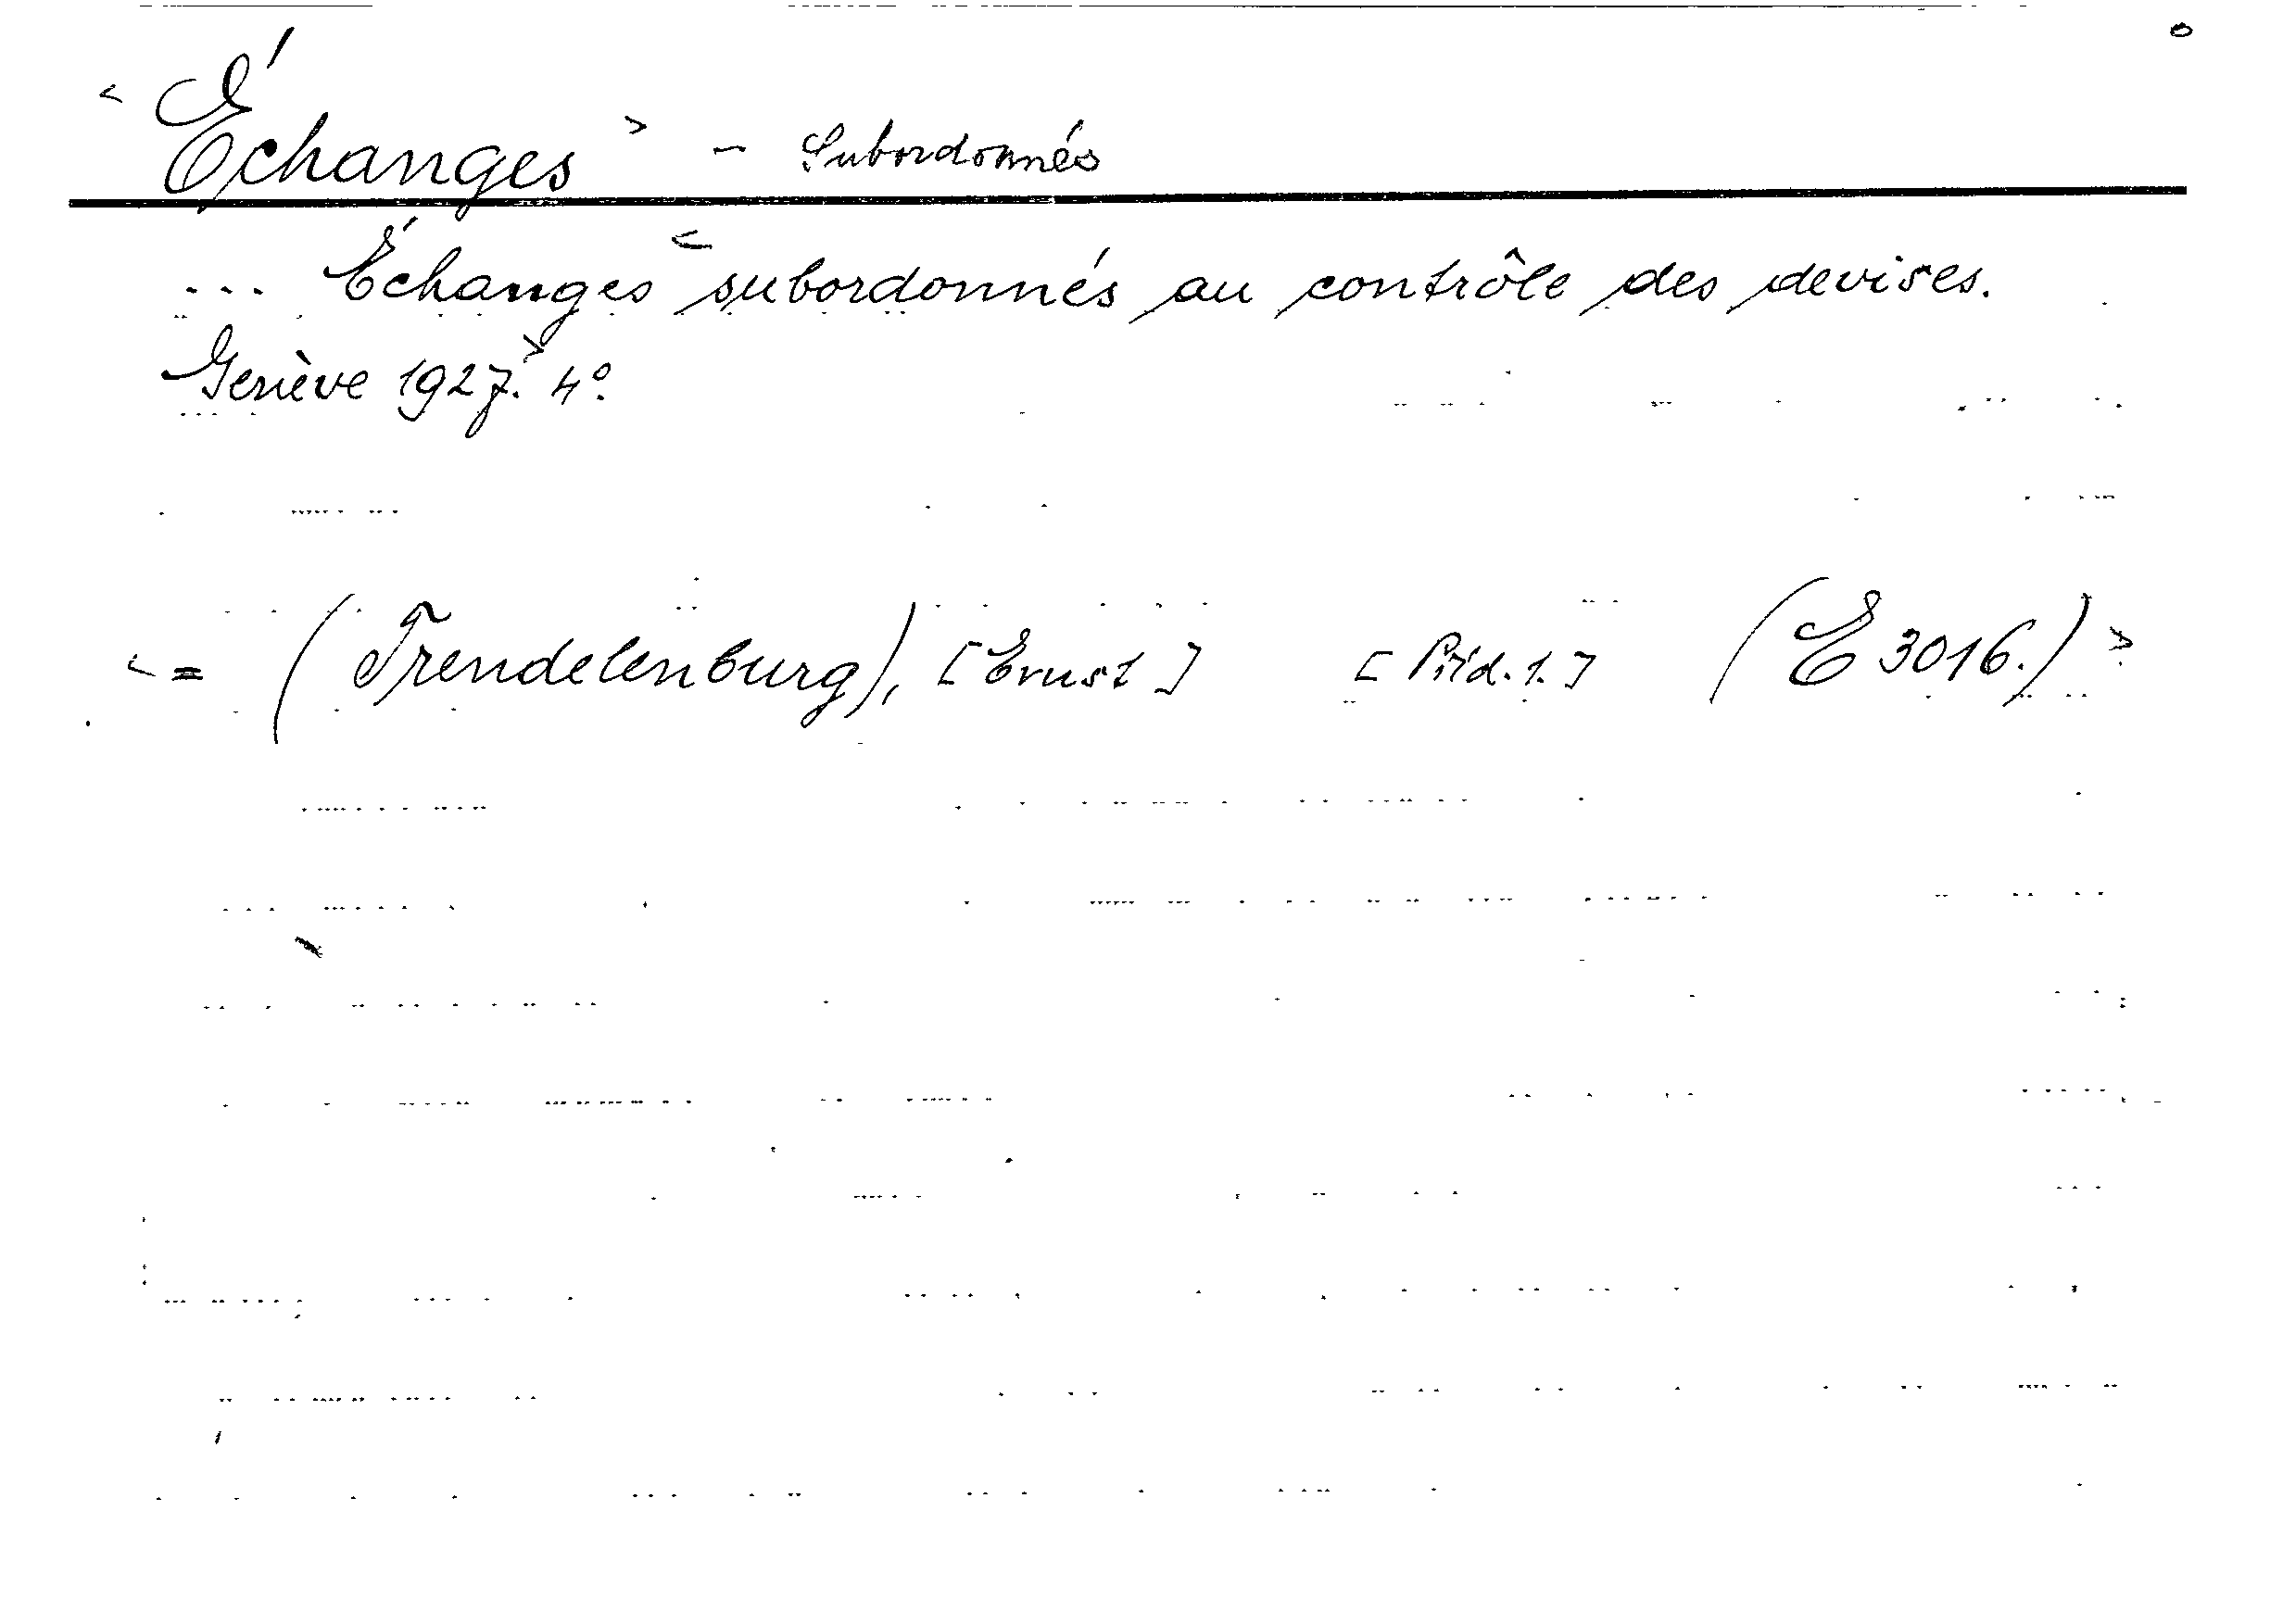 < Échanges > - Subordonnés
... Échanges < subordonnés au contrôle des devises.
Genève 1927. > 4°.
< = (Trendelenburg), [Ernst] [Präd. 1.] (E 3016.) >